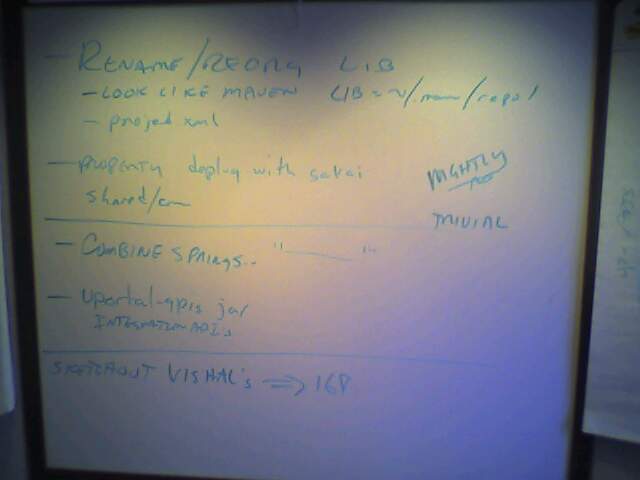 - RENAME/REORG LIB
- LOOK LIKE MAVEN LIB = ~/.maven/repo/
- project xml
- PROPERTY deploy with sakai
shared/cm
NIGHTLY
TRIVIAL
- COMBINE SPRINGS.. " "
- uportal-apis jar
INTEGRATION API's
SKETCHOUT VISHAL's ⇒ 168